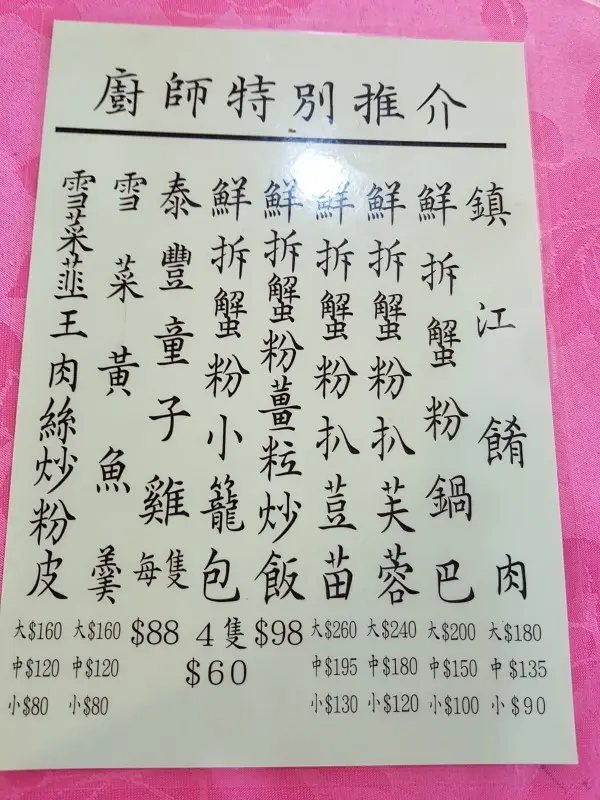 廚師特別推介
鎮江餚肉
大$180
中$135
小$90
鮮拆蟹粉鍋巴
大$200
中$150
小$100
鮮拆蟹粉扒芙蓉
大$240
中$180
小$120
鮮拆蟹粉扒荳苗
大$260
中$195
小$130
鮮拆蟹粉薑粒炒飯
$98
鮮拆蟹粉小籠包
4隻
$60
泰豐童子雞每隻
$88
雪菜黃魚羹
大$160
中$120
小$80
雪菜韮王肉絲炒粉皮
大$160
中$120
小$80